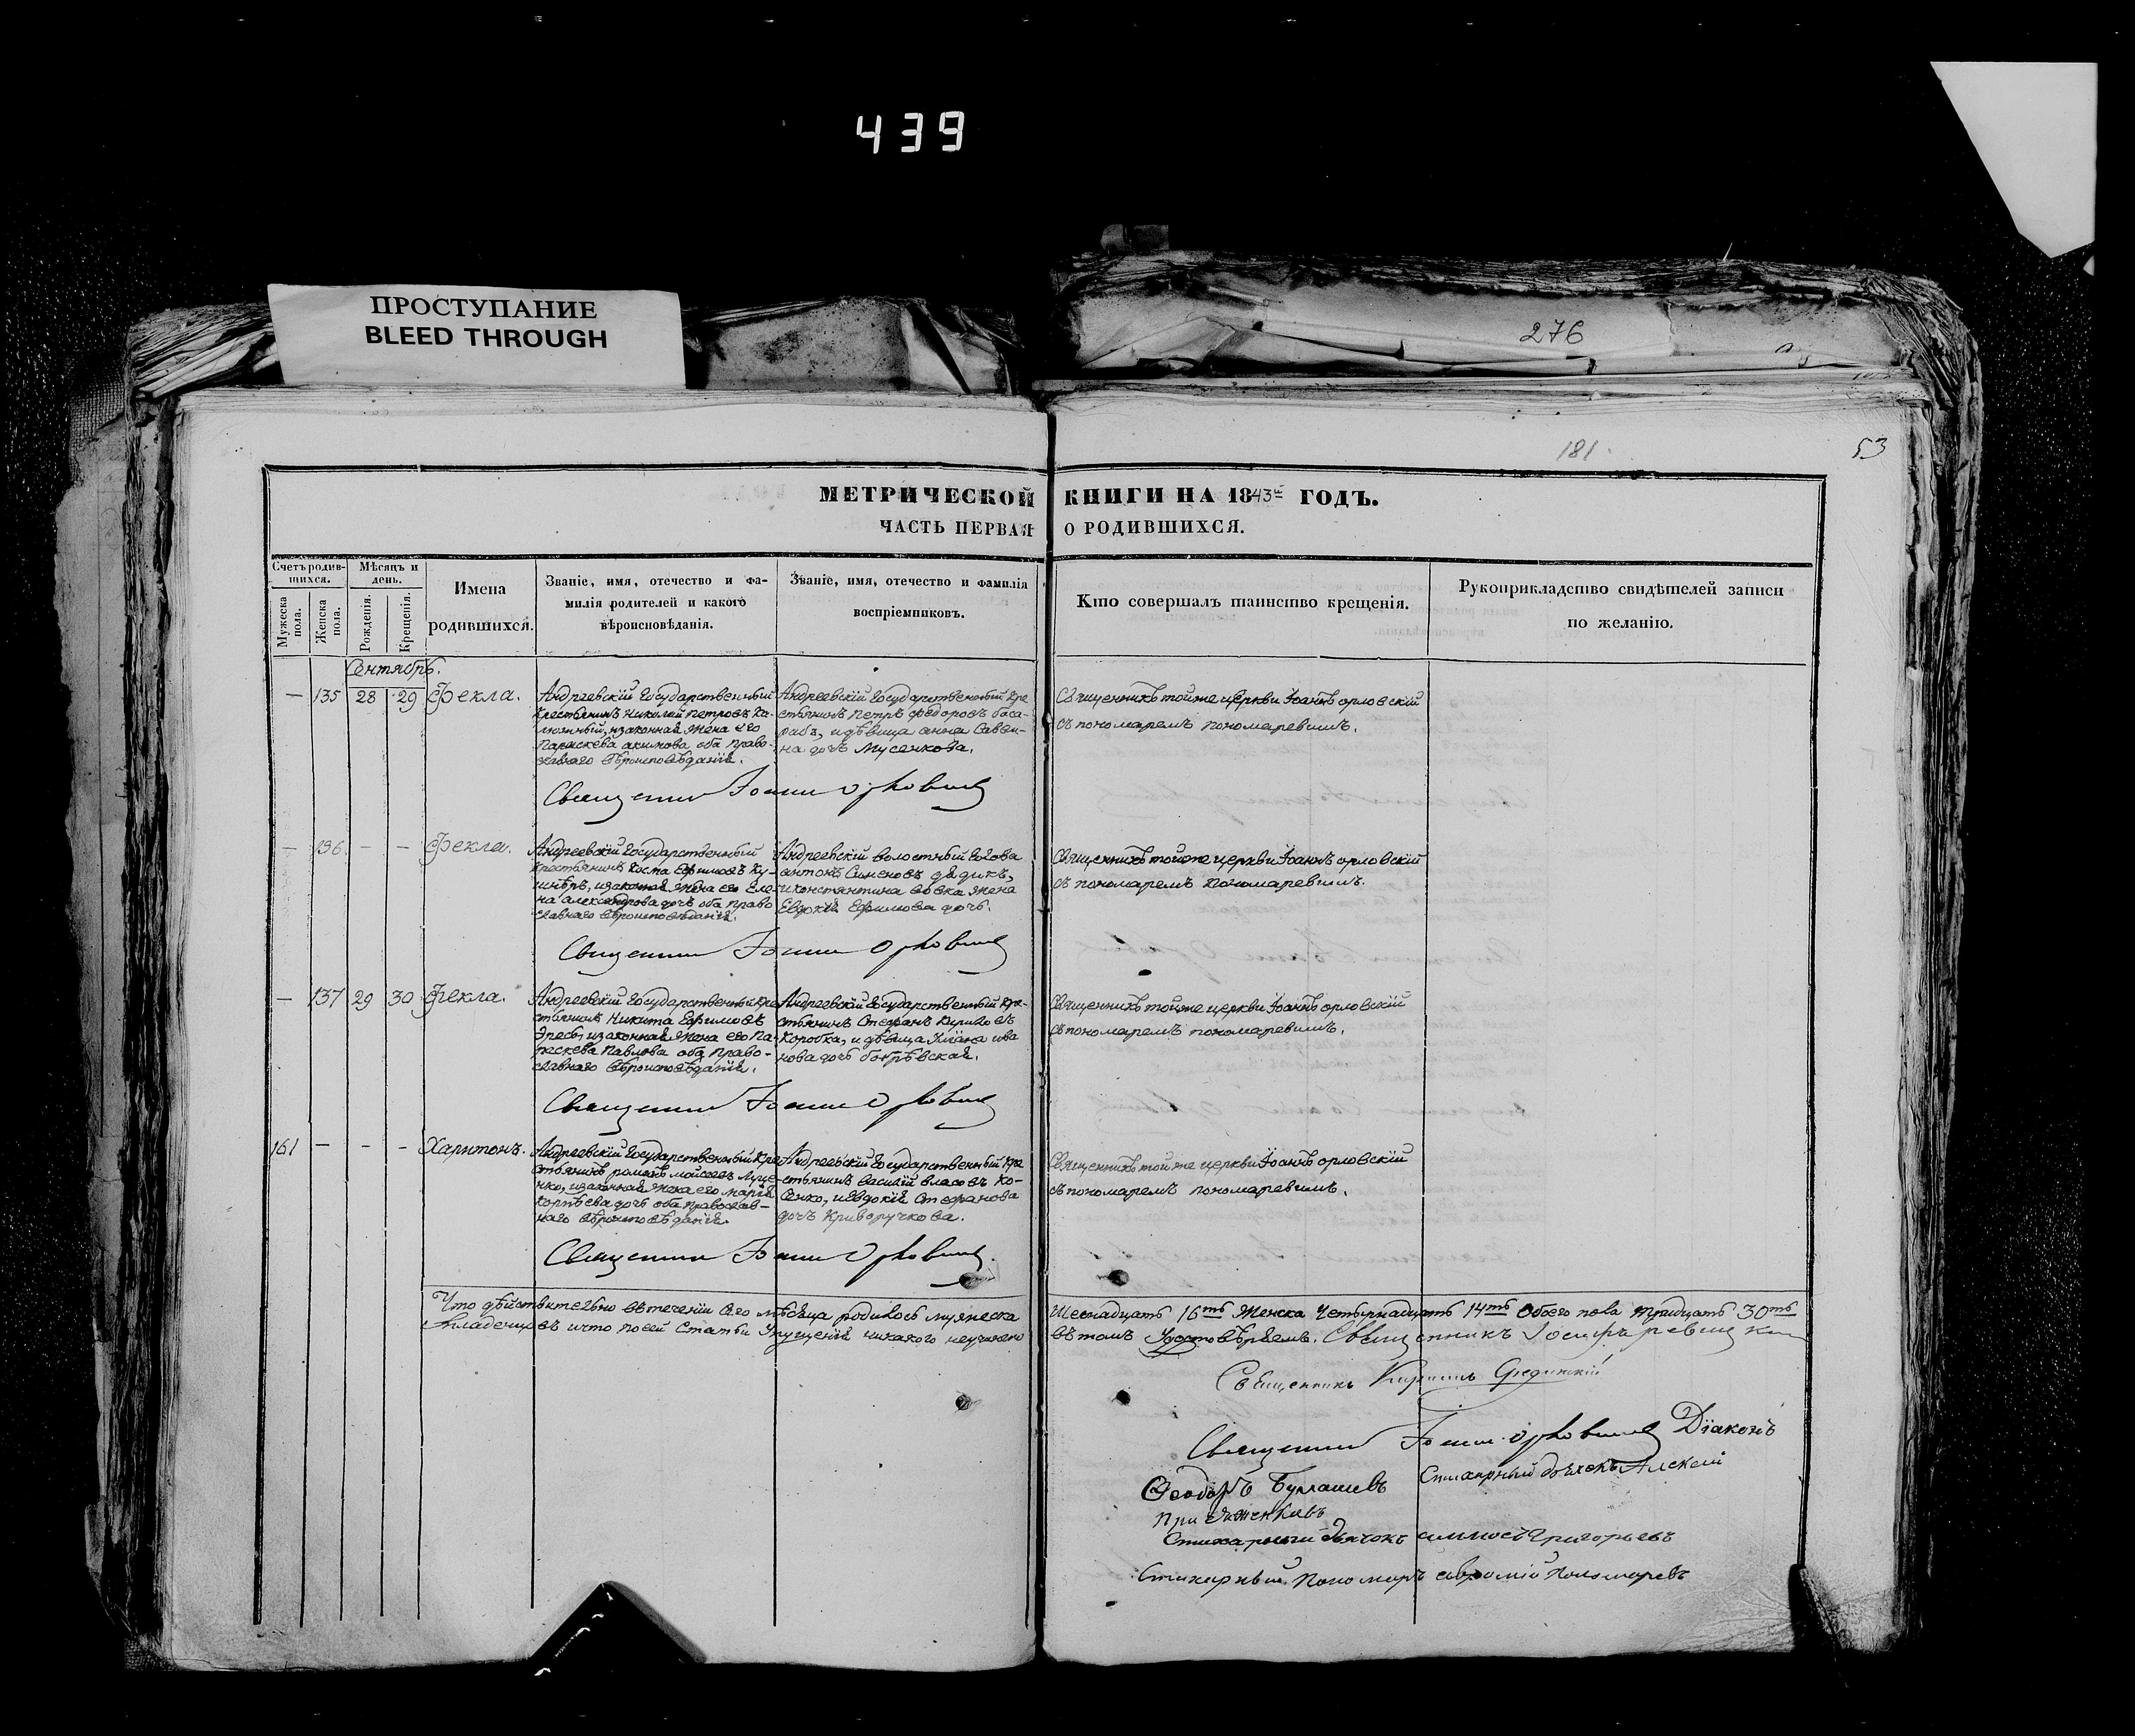 439
ПРОСТУПАНИЕ
BLEED THROUGH
276
181
53
МЕТРИЧЕСКОЙ КНИГИ НА 1843й ГОДЪ.
ЧАСТЬ ПЕРВАЯ О РОДИВШИХСЯ.
Счетъ родив-
шихся.
Мужеска пола.
Женска пола.
Мѣсяцъ и
день.
Рожденія.
Крещенія.
Имена
родившихся.
Званіе, имя, отечество и фа-
милія родителей и какого
вѣроисповѣданія.
Званіе, имя, отечество и фамилія
воспріемниковъ.
Кто совершалъ таинство крещенія.
Рукоприкладство свидѣтелей записи
по желанію.
Сентябрь.
— 135 28 29 Фекла.
Андреевскій Государственный
Крестьянинъ Николай Петровъ Ка-
люжный, и законная жена его
Параскева Акимова оба право-
славнаго вѣроисповѣданія.
Андреевскій Государственный Кре
стьянинъ Петръ Федоровъ баса-
рабъ, и дѣвица анна Савви-
на дочь Мусенкова.
Священникъ тойже церкви Іоаннъ орловскій
съ пономаремъ пономаревымъ.
Священникъ Іоаннъ Орловскій
— 136 — — Фекла.
Андреевскій Государственный
Крестьянинъ Косма Ефимовъ Ку-
шнѣръ, и законная жена его Еле-
на Александрова дочь оба право
славнаго вѣроисповѣданія.
Андреевскій волостный Голова
антонъ Симеоновъ дѣдикъ,
и константина вовка жена
Евдокія Ефимова дочь.
Священникъ тойже церкви Іоаннъ орловскій
съ пономаремъ Пономаревымъ.
Священникъ Іоаннъ Орловскій
— 137 29 30 Фекла.
Андреевскій Государственный Кре
стьянинъ Никита Ефимовъ
и законная жена его Па-
раскева Павлова оба право-
славнаго вѣроисповѣданія.
Андреевскій Государственный Кре-
стьянинъ Стефанъ Кириловъ
Коробка, и дѣвица Уліана ива
нова дочь
Священникъ тойже церкви Іоаннъ орловскій
съ пономаремъ пономаревымъ.
Священникъ Іоаннъ Орловскій
161 — — — Харитонъ.
Андреевскій Государственный Кре
стьянинъ романъ мойсеевъ Луце-
нко, и законная жена его марія
Корнѣева дочь оба православ-
наго вѣроисповѣданія.
Андреевскій Государственный Кре
стьянинъ василій власовъ Ко-
сенко, и евдокія Стефанова
дочь Криворучкова.
Священникъ тойже церкви Іоаннъ орловскій
съ пономаремъ пономаревымъ.
Священникъ Іоаннъ Орловскій
Что дѣйствительно въ теченіи сего мѣсяца родилось мужеска Шестнадцать 16ть Женска Четырнадцать 14ть Обоего пола тридцать 30ть
младенцовъ и что по сей Статьи Упущенія никакого неучинено въ томъ Удостовѣряемъ. Священникъ Іосифъ
Священникъ Кириллъ
Священникъ Іоаннъ Орловскій Діаконъ
Ѳеодоръ Бурлашевъ Стихарный дьячекъ Алексій
Стихарный дьячокъ Григорьевъ
Стихарный Пономарь Пономаревъ